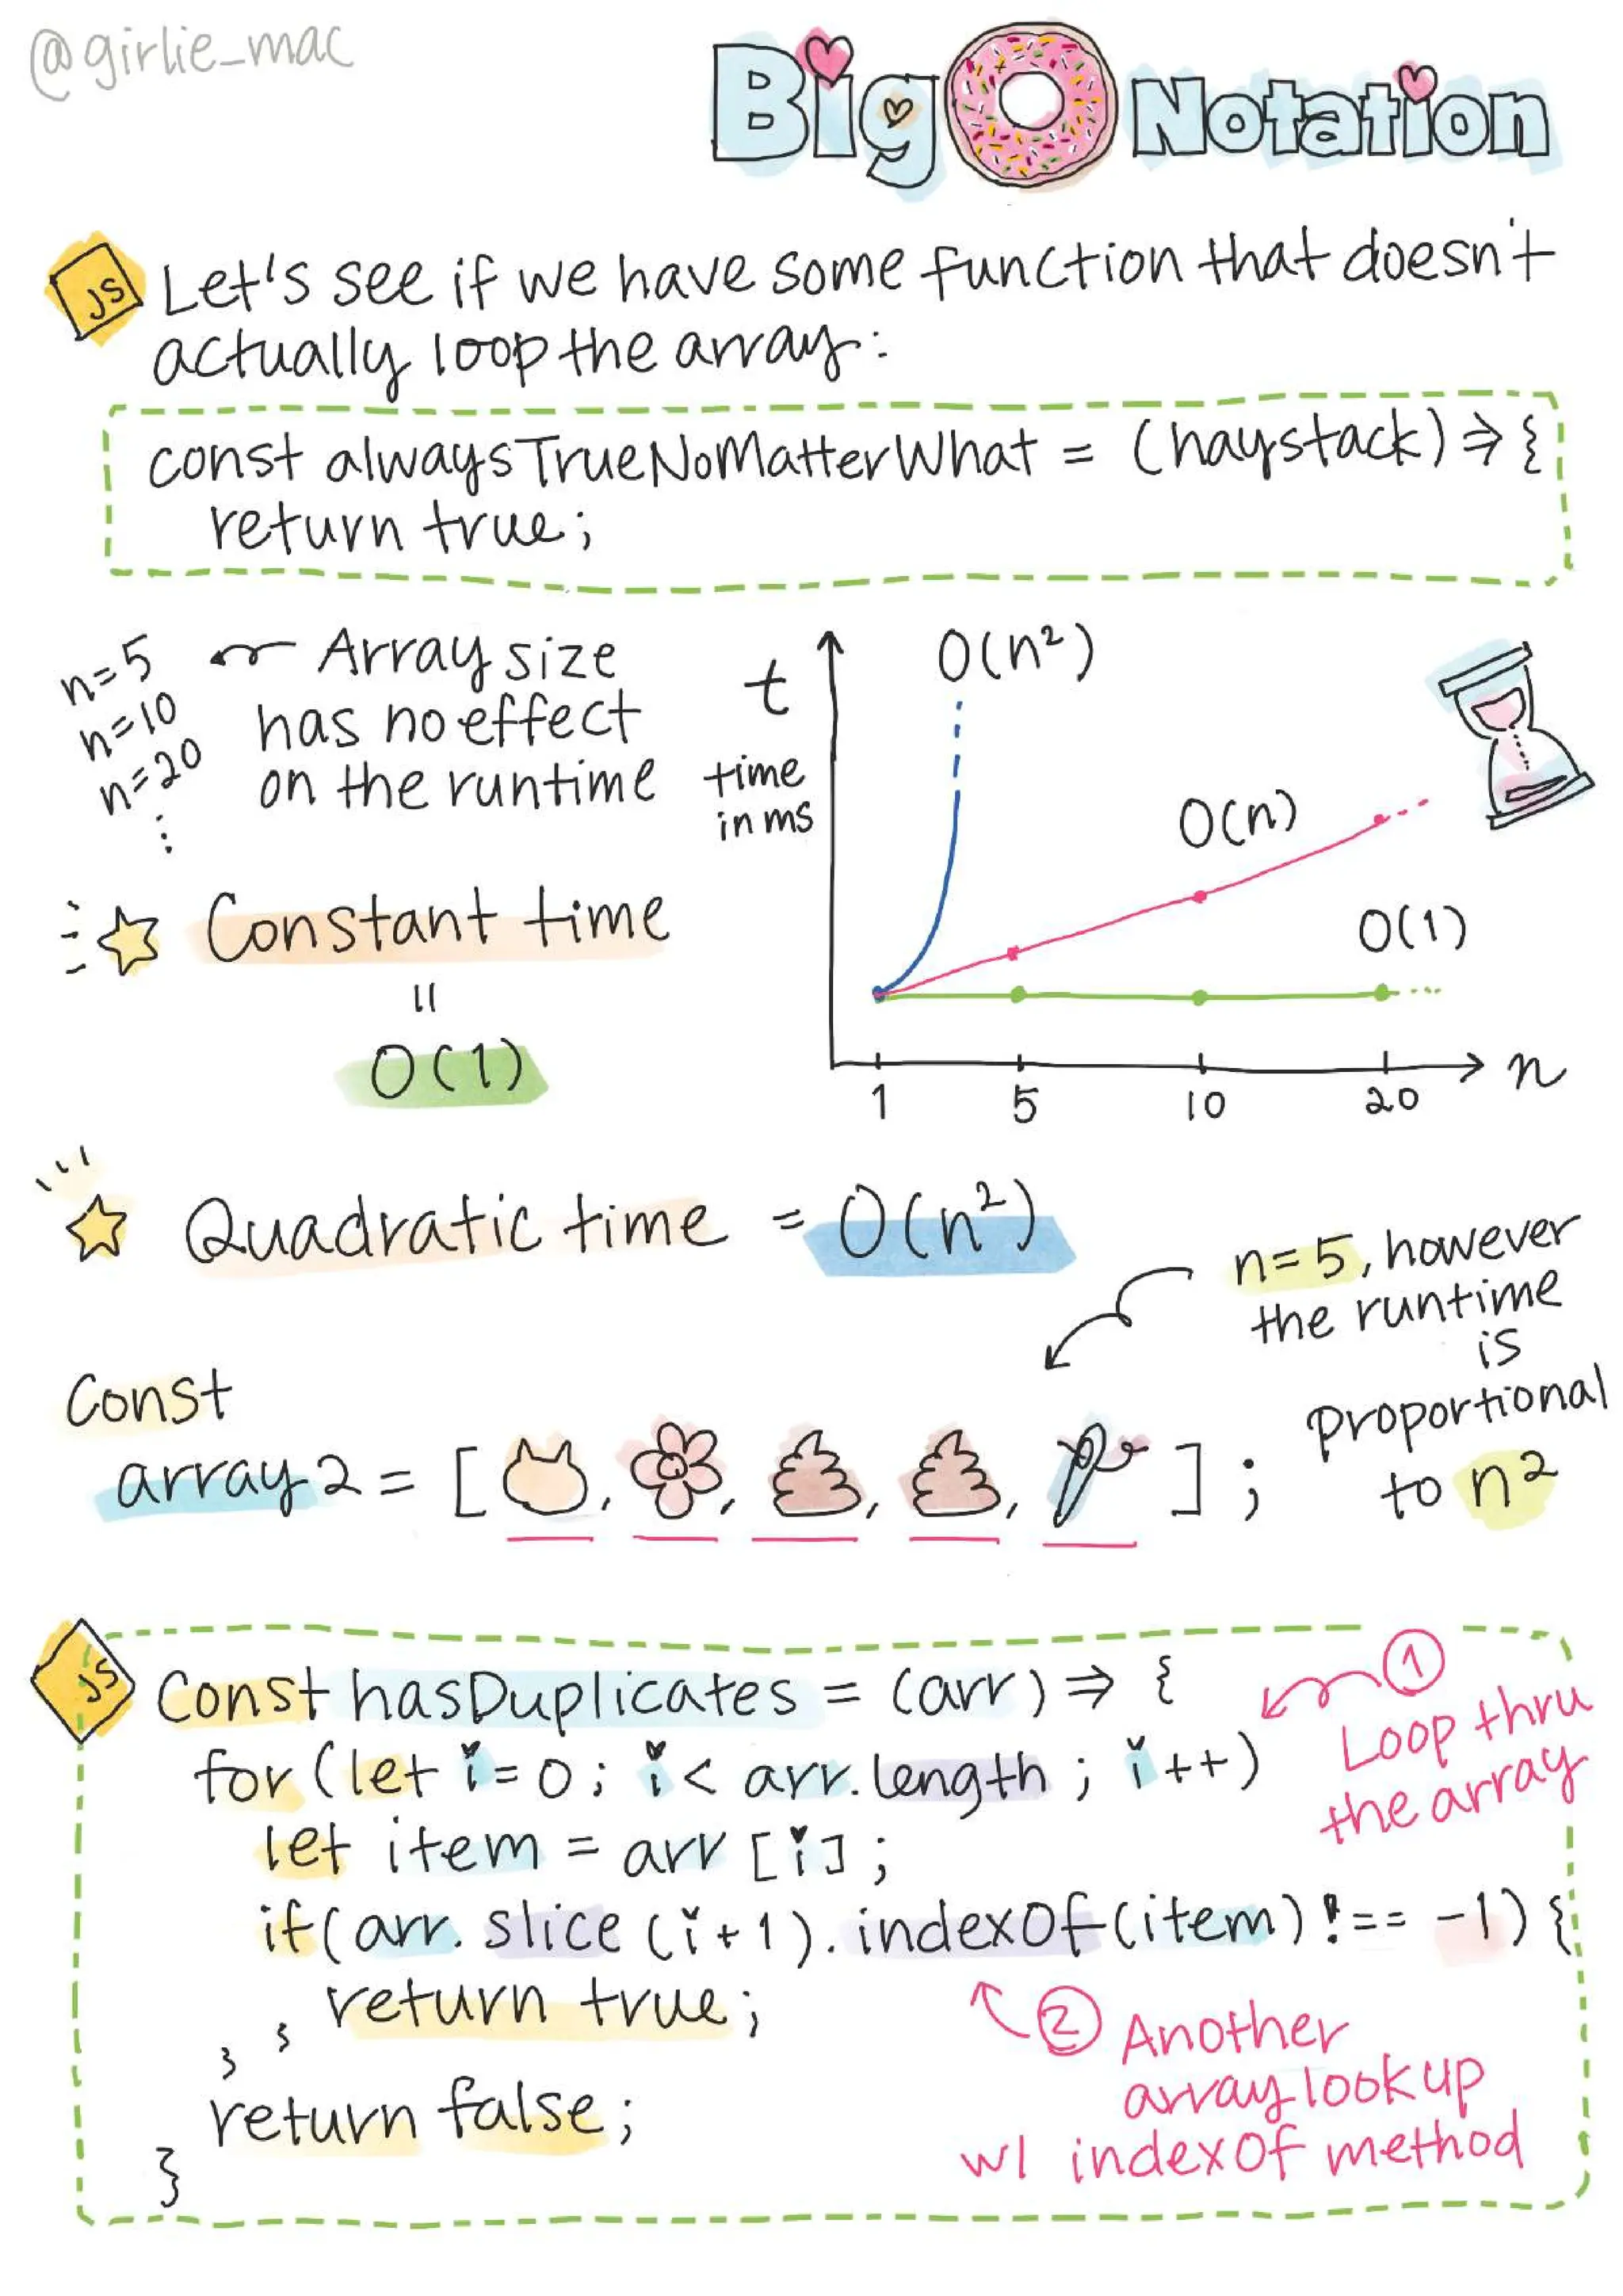 @girlie_mac
Big O Notation
JS Let's see if we have some function that doesn't
actually loop the array:
const alwaysTrueNoMatterWhat = (haystack) => {
return true;
n=5
n=10
n=20
⋮
Array size
has no effect
on the runtime
Constant time
=
O(1)
t
time
in ms
O(n²)
O(n)
O(1)
1 5 10 20 n
Quadratic time = O(n²)
n=5, however
the runtime
is
proportional
to n²
Const
array2 = [ , , , , ] ;
JS
Const hasDuplicates = (arr) => {
for (let i=0; i < arr.length ; i++)
let item = arr [i] ;
if(arr. slice (i+1). indexOf(item) !== -1) {
return true;
} }
return false;
}
1
Loop thru
the array
2 Another
array lookup
w/ indexOf method